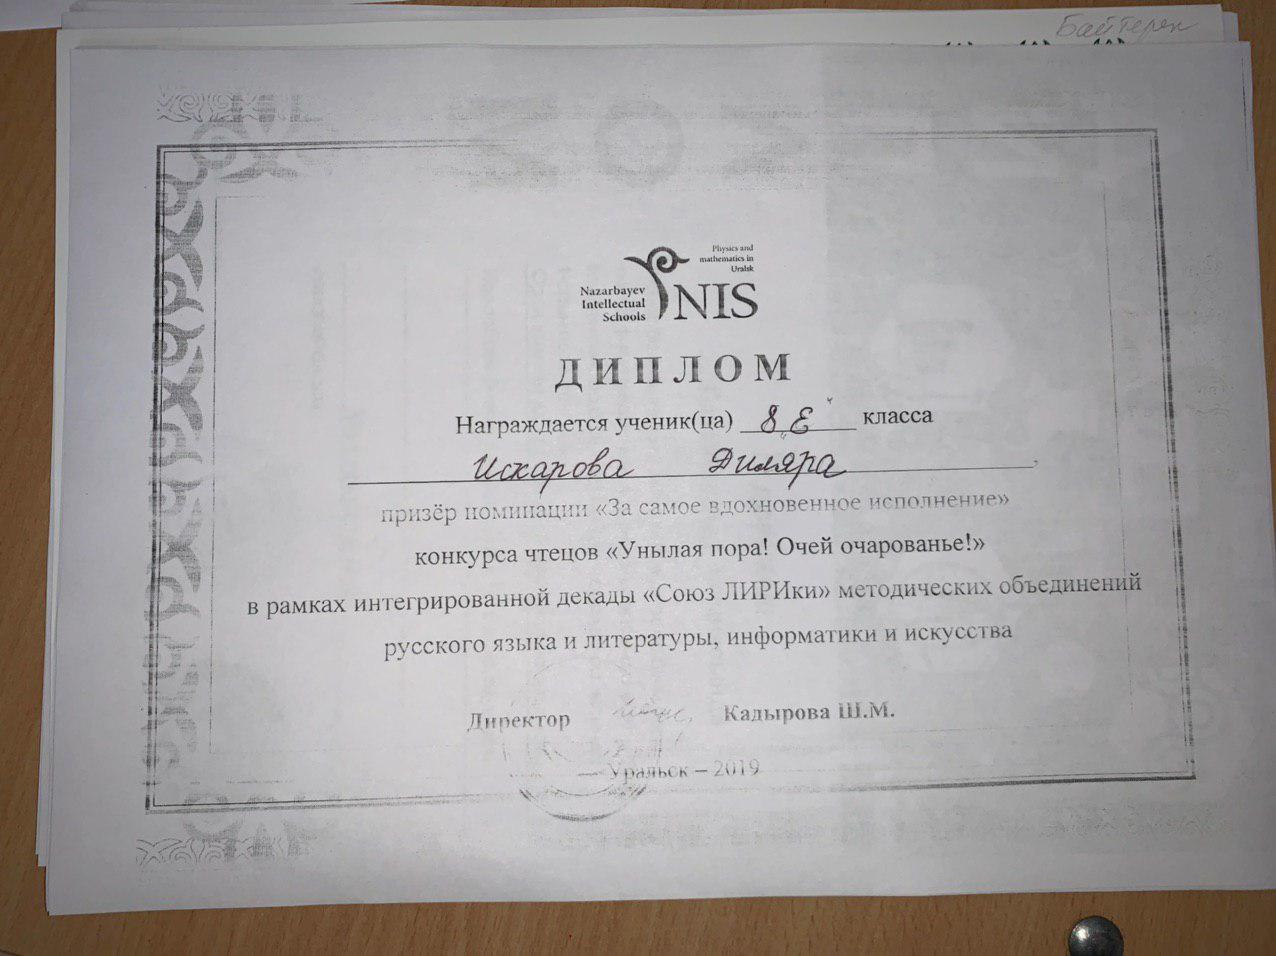 Байтерек
Physics and
mathematics in
Uralsk
Nazarbayev
Intellectual
Schools
NIS
ДИПЛОМ
Награждается ученик(ца) 8 „Е“ класса
Искарова Диляра
призёр номинации «За самое вдохновенное исполнение»
конкурса чтецов «Унылая пора! Очей очарованье!»
в рамках интегрированной декады «Союз ЛИРИки» методических объединений
русского языка и литературы, информатики и искусства
Директор Кадырова Ш.М.
Уральск – 2019